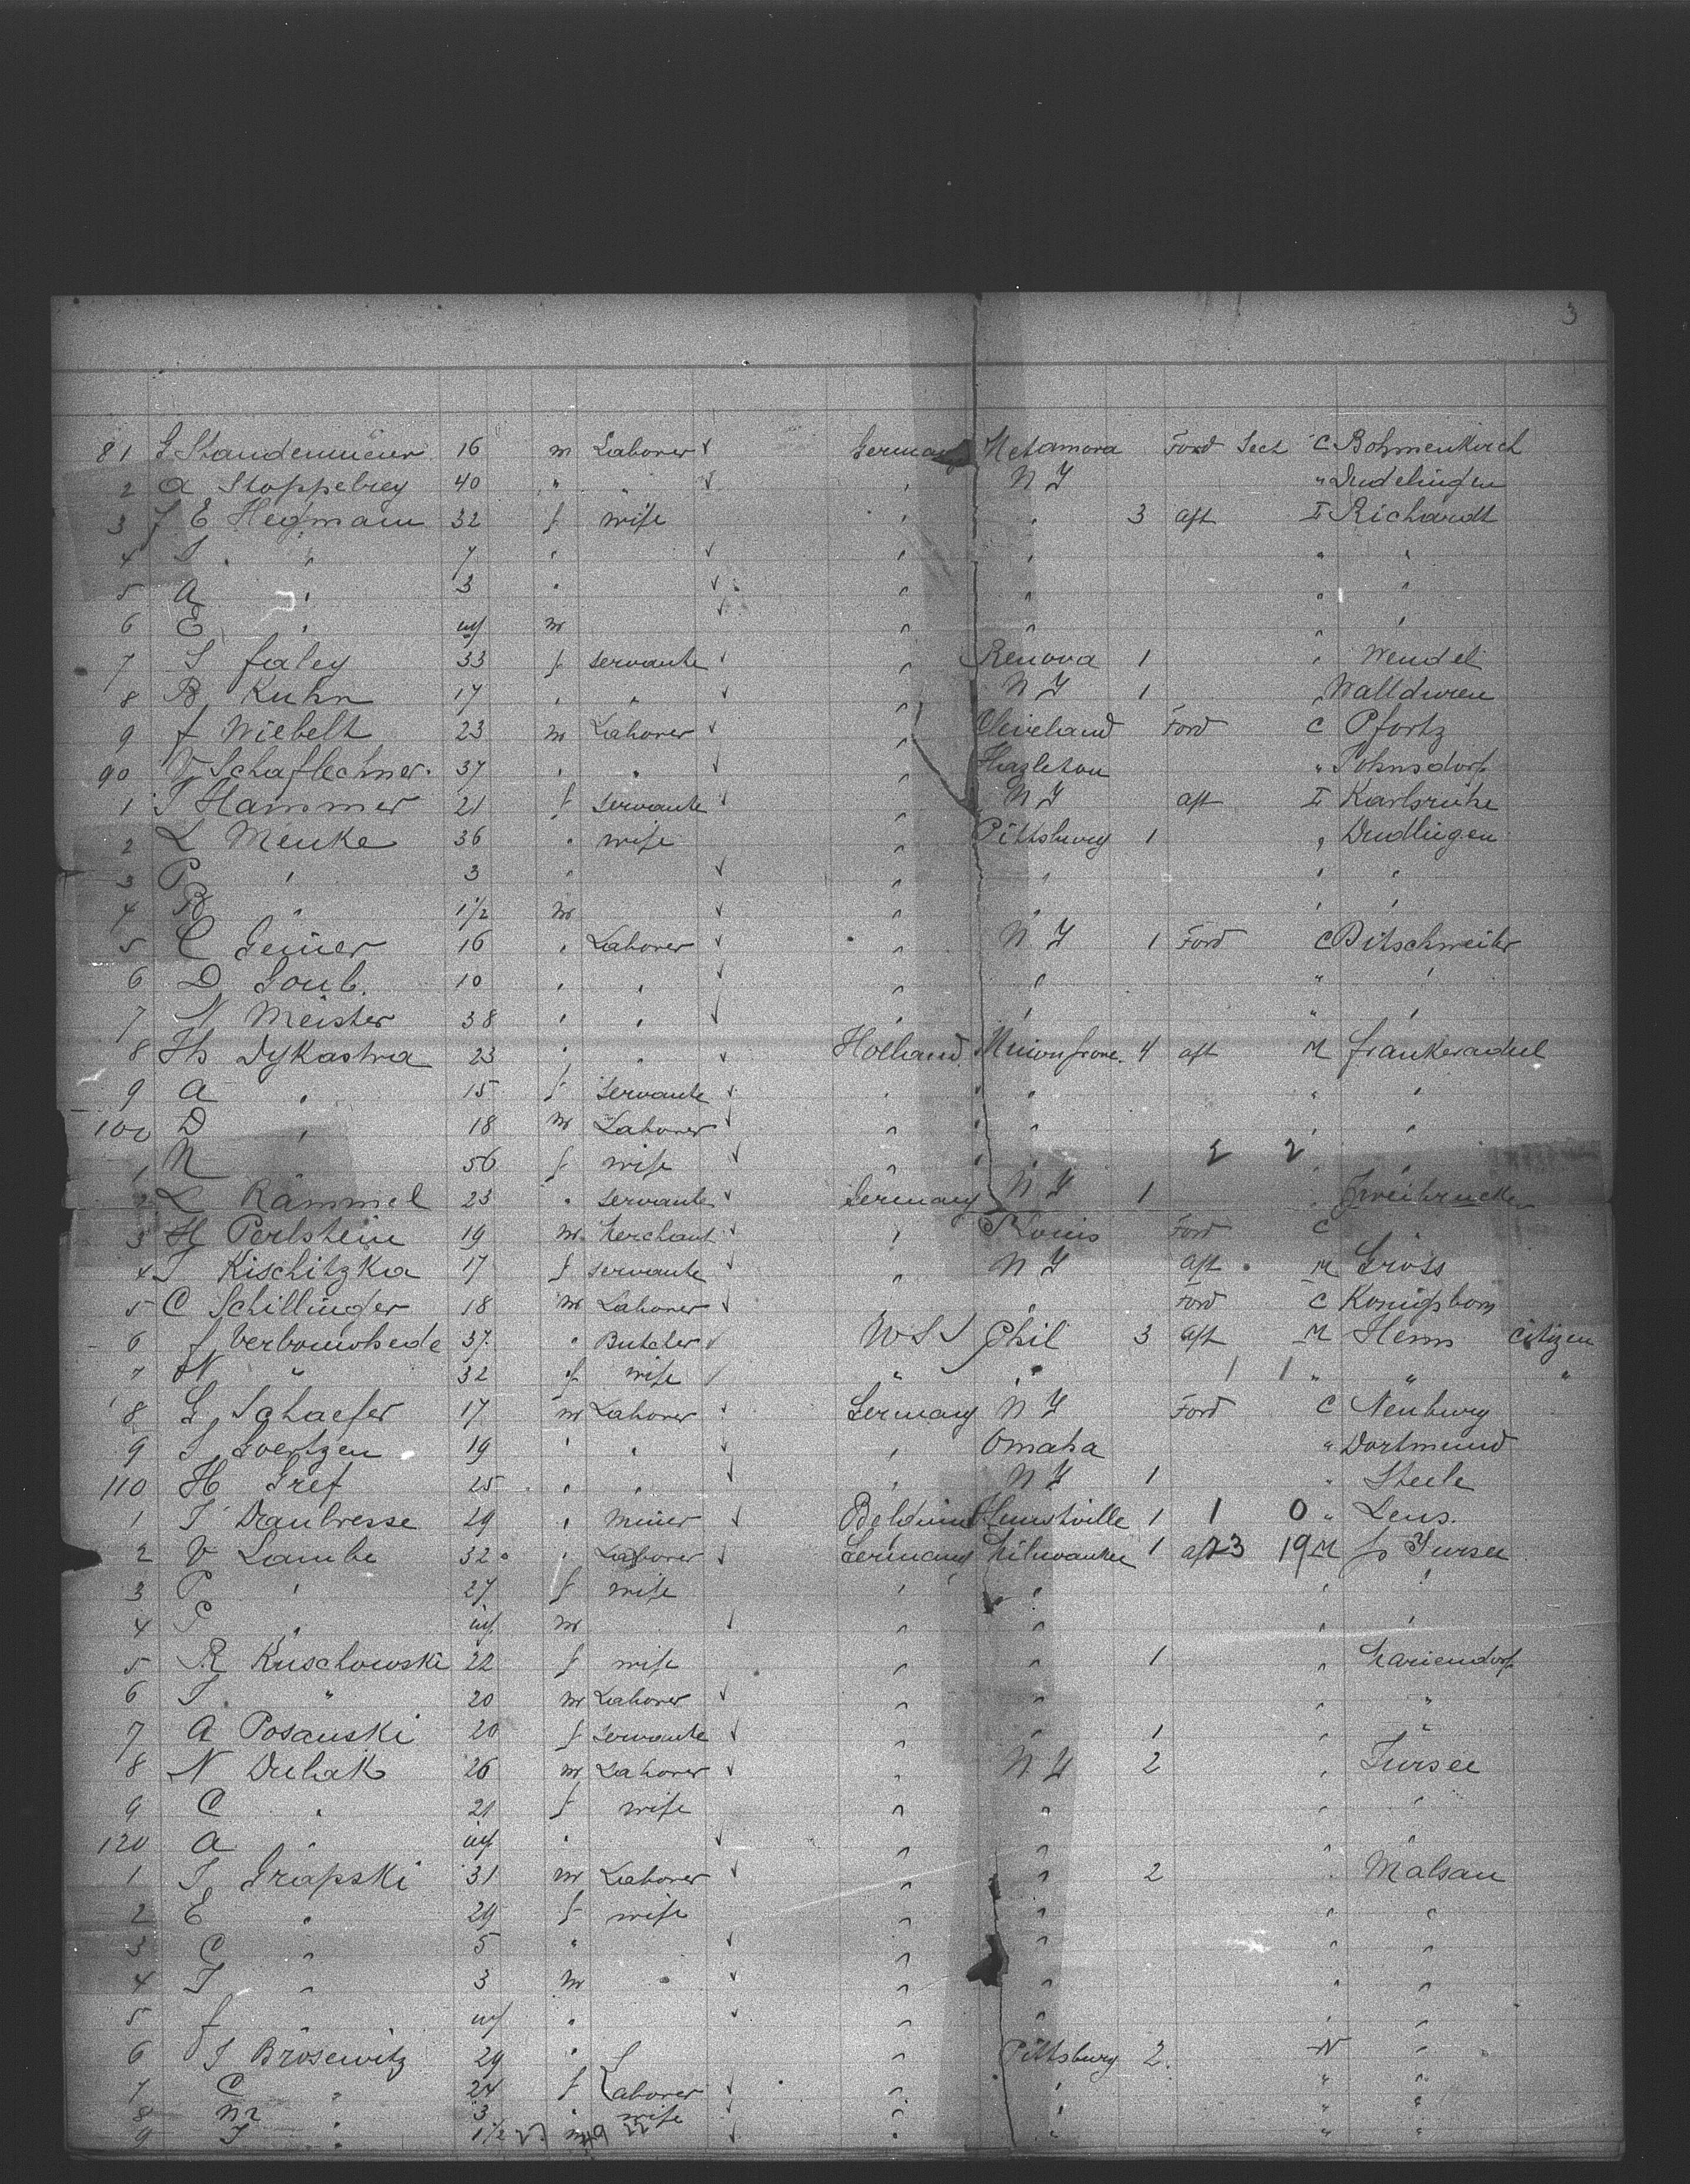 3
81 G Standenmeier 16 m Laborer ✓ Germany Metamora Ford Sect C Bohmenkirch
2 A Stoppebrey 40 " " ✓ " N Y " Dudelingen
3 J E Hegmann 32 f wife " " 3 aft I Richardt
4 S " 7 " ✓ " " " "
5 A " 3 " ✓ " " " "
6 E " inf m ✓ " " " "
7 S Faley 33 f servante ✓ " Renova 1 " Wendel
8 B Kuhn 17 " " ✓ " N Y 1 " Walldwren
9 F Wiebelt 23 m Laborer ✓ " Cleveland Ford C Pfortz
90 V Schaflechner 37 " " ✓ " Hazleton " Pohnsdorf
1 T Hammer 21 f servante ✓ " N Y aft I Karlsruhe
2 L Menke 36 " wife " Pittsburg 1 " Dudlingen
3 P " 3 " ✓ " " " "
4 B " 1 1/2 m ✓ " " " "
5 C Geiner 16 " Laborer ✓ " N Y 1 Ford C Bitschweiler
6 D Goub. 10 " " ✓ " " " "
7 N Meister 38 " " ✓ " " " "
8 Hs Dykastra 23 " " ✓ Holland Union Grove 4 aft M Frankeradeel
9 A " 15 f servante ✓ " " " "
100 D " 18 m Laborer ✓ " " " "
1 N 56 f wife ✓ " " 2 2 " "
2 L Rammel 23 " servante ✓ Germany N Y 1 " Zweibrucken
3 H Perlstein 19 m Merchant ✓ " St Louis Ford C "
4 T Kischitzka 17 f servante ✓ " N Y aft M Gross
5 C Schillinger 18 m Laborer ✓ " Ford C Konigsborn
6 F Verbouwhede 37 " Butcher ✓ U S Phil 3 aft M Hems citizen
7 N " 32 f wife / " " 1 1 " " "
8 G Schaefer 17 m Laborer ✓ Germany N Y Ford C Neuburg
9 J Goertzen 19 " " ✓ " Omaha " Dortmund
110 H Gref 25 " " ✓ " N Y 1 " Steele
1 T Daubresse 29 " Miner ✓ Belgium 1 1 0 " Lens.
2 V Lambe 32 " Laborer ✓ Germany Milwaukee 1 aft 23 19 M Tursee
3 P " 27 f wife " " " "
4 P " inf m ✓ " " " "
5 R Kuschowski 22 f wife " " 1 " Mariendorf
6 T " 20 m Laborer ✓ " " " "
7 A Posanski 20 f servante ✓ " " 1 " "
8 N Dulak 26 m Laborer ✓ " N Y 2 " Tursee
9 C " 21 f wife " " " "
120 A " inf " ✓ " " " "
1 T Grapski 31 m Laborer ✓ " " 2 " Malsau
2 E " 29 f wife " " " "
3 C " 5 " ✓ " " " "
4 T " 3 m ✓ " " " "
5 F inf " ✓ " " " "
6 J Brosewitz 29 " " Pittsburg 2. N "
7 C " 24 f Laborer ✓ " " " "
8 M " 3 " wife " " " "
9 T " 1 1/2 m ✓ " " " "